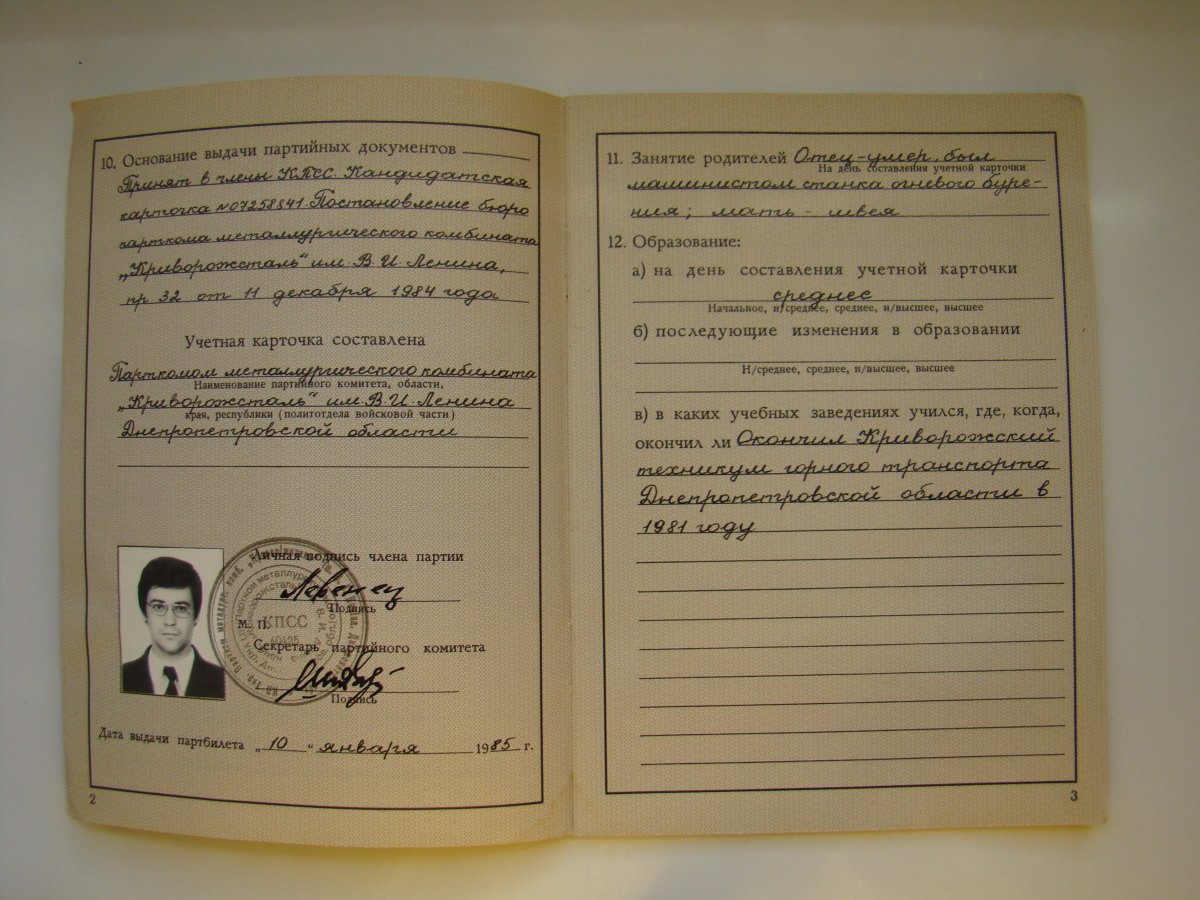 10. Основание выдачи партийных документов
Принят в члены КПСС. Кандидатская
карточка №07258841. Постановление бюро
парткома металлургического комбината
„Криворожсталь" им. В. И. Ленина,
пр 32 от 11 декабря 1984 года
Учетная карточка составлена
Парткомом металлургического комбината
Наименование партийного комитета, области,
„Криворожсталь" им. В. И. Ленина
края, республики (политотдела войсковой части)
Днепропетровской области
Личная подпись члена партии
Подпись
М. П.
КПСС
Секретарь партийного комитета
Подпись
Дата выдачи партбилета „10" января 1985 г.
2
11. Занятие родителей Отец-умер, был
На день составления учетной карточки
машинистом станка огневого буре-
ния; мать - швея
12. Образование:
а) на день составления учетной карточки
среднее
Начальное, н/среднее, среднее, н/высшее, высшее
б) последующие изменения в образовании
Н/среднее, среднее, н/высшее, высшее
в) в каких учебных заведениях учился, где, когда,
окончил ли Окончил Криворожский
техникум горного транспорта
Днепропетровской области в
1981 году
3